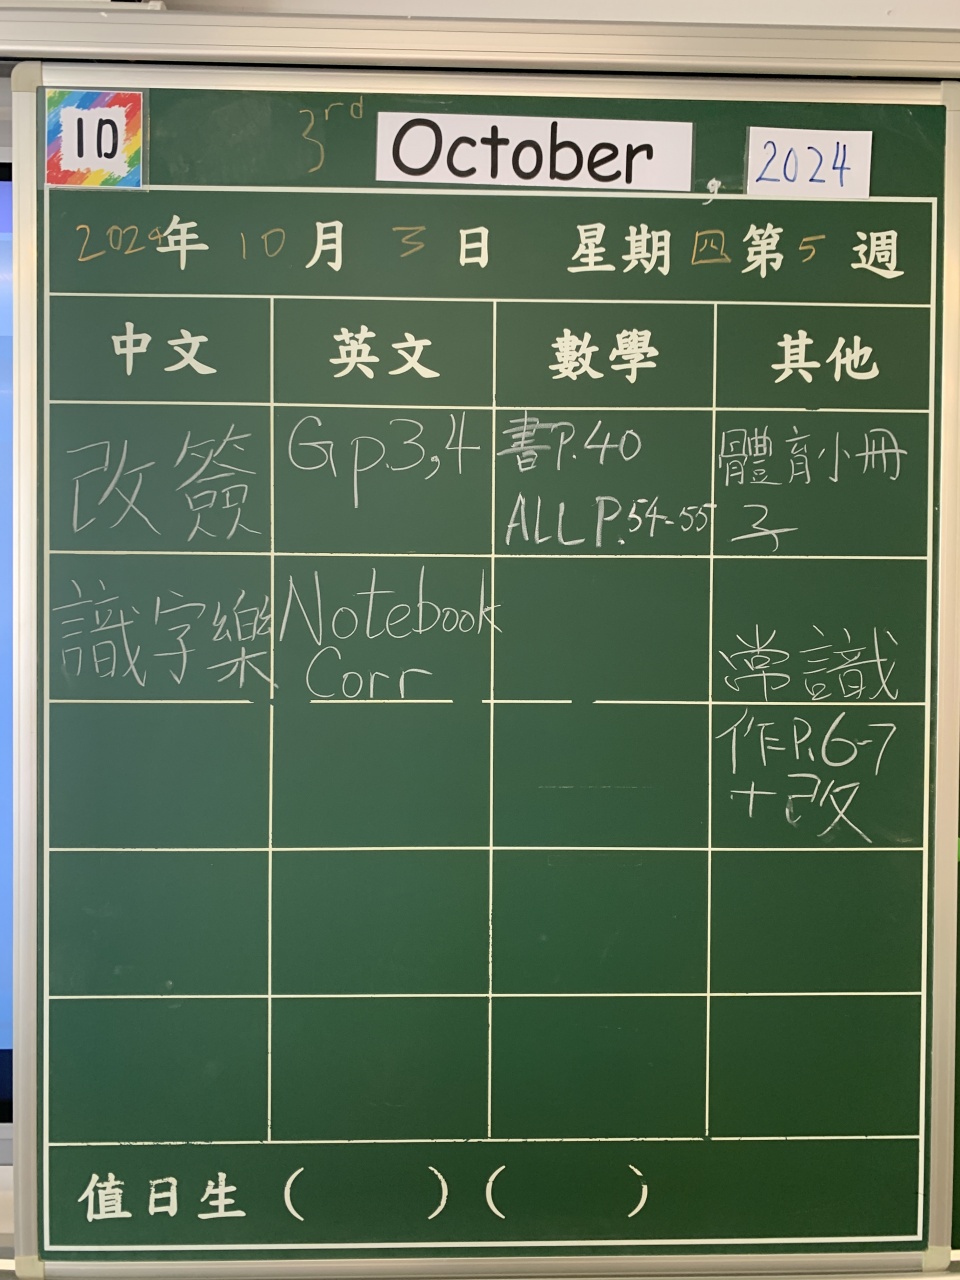 1D
3rd October, 2024
2024年 10月 3日 星期四 第5週
中文 英文 數學 其他
改簽 Gp.3,4 書P.40 體育小冊
ALL P.54-55 子
識字樂 Notebook
Corr 常識
作P.6-7
+改
值日生 ( ) ( )